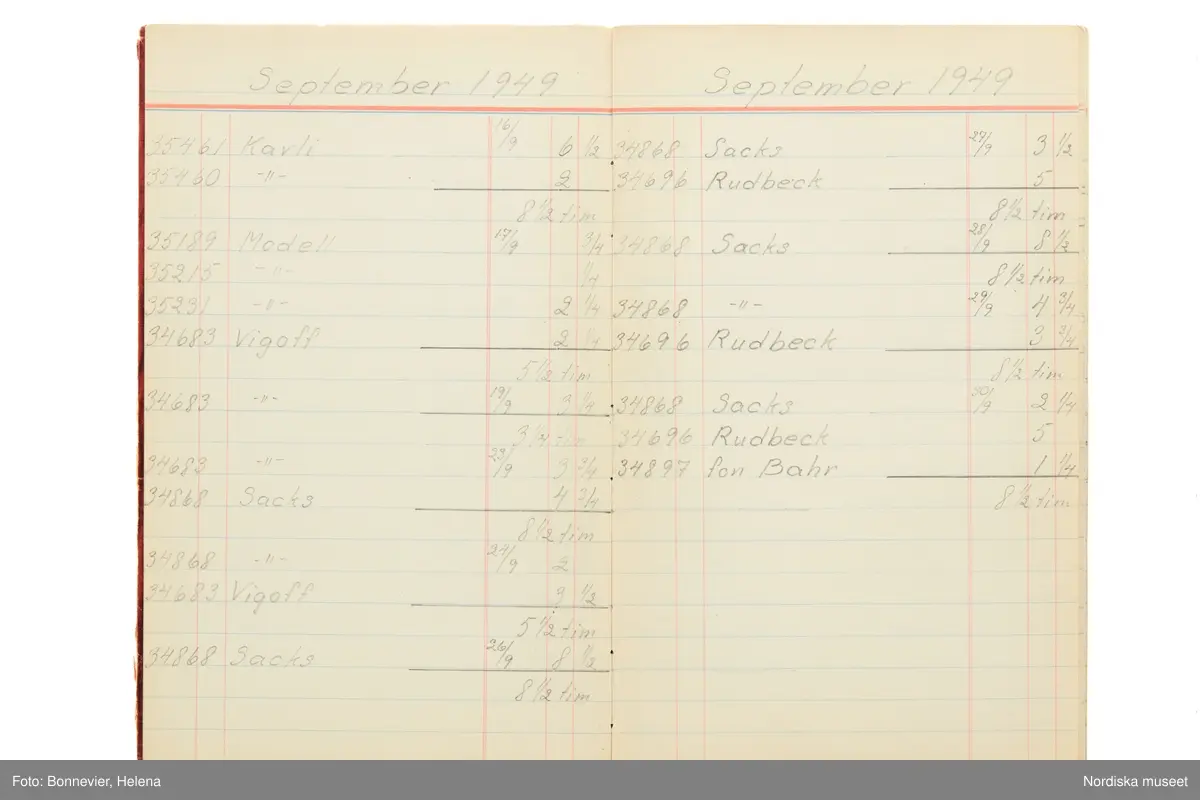 September 1949
35461 Karli 16/9 6 1/2
35460 -"- 2
8 1/2 tim
35189 Modell 17/9 3/4
35215 -"- 1/4
35231 -"- 2 1/4
34683 Vigoff 2 1/4
5 1/2 tim
34683 -"- 19/9 3 1/4
3 1/4 tim
34683 -"- 23/9 3 3/4
34868 Sacks 4 3/4
8 1/2 tim
34868 -"- 24/9 2
34683 Vigoff 3 1/2
5 1/2 tim
34868 Sacks 26/9 8 1/2
8 1/2 tim
September 1949
34868 Sacks 27/9 3 1/2
34696 Rudbeck 5
8 1/2 tim
34868 Sacks 28/9 8 1/2
8 1/2 tim
34868 -"- 29/9 4 3/4
34696 Rudbeck 3 3/4
8 1/2 tim
34868 Sacks 30/9 2 1/4
34696 Rudbeck 5
34897 fon Bahr 1 1/4
8 1/2 tim
Foto: Bonnevier, Helena
Nordiska museet